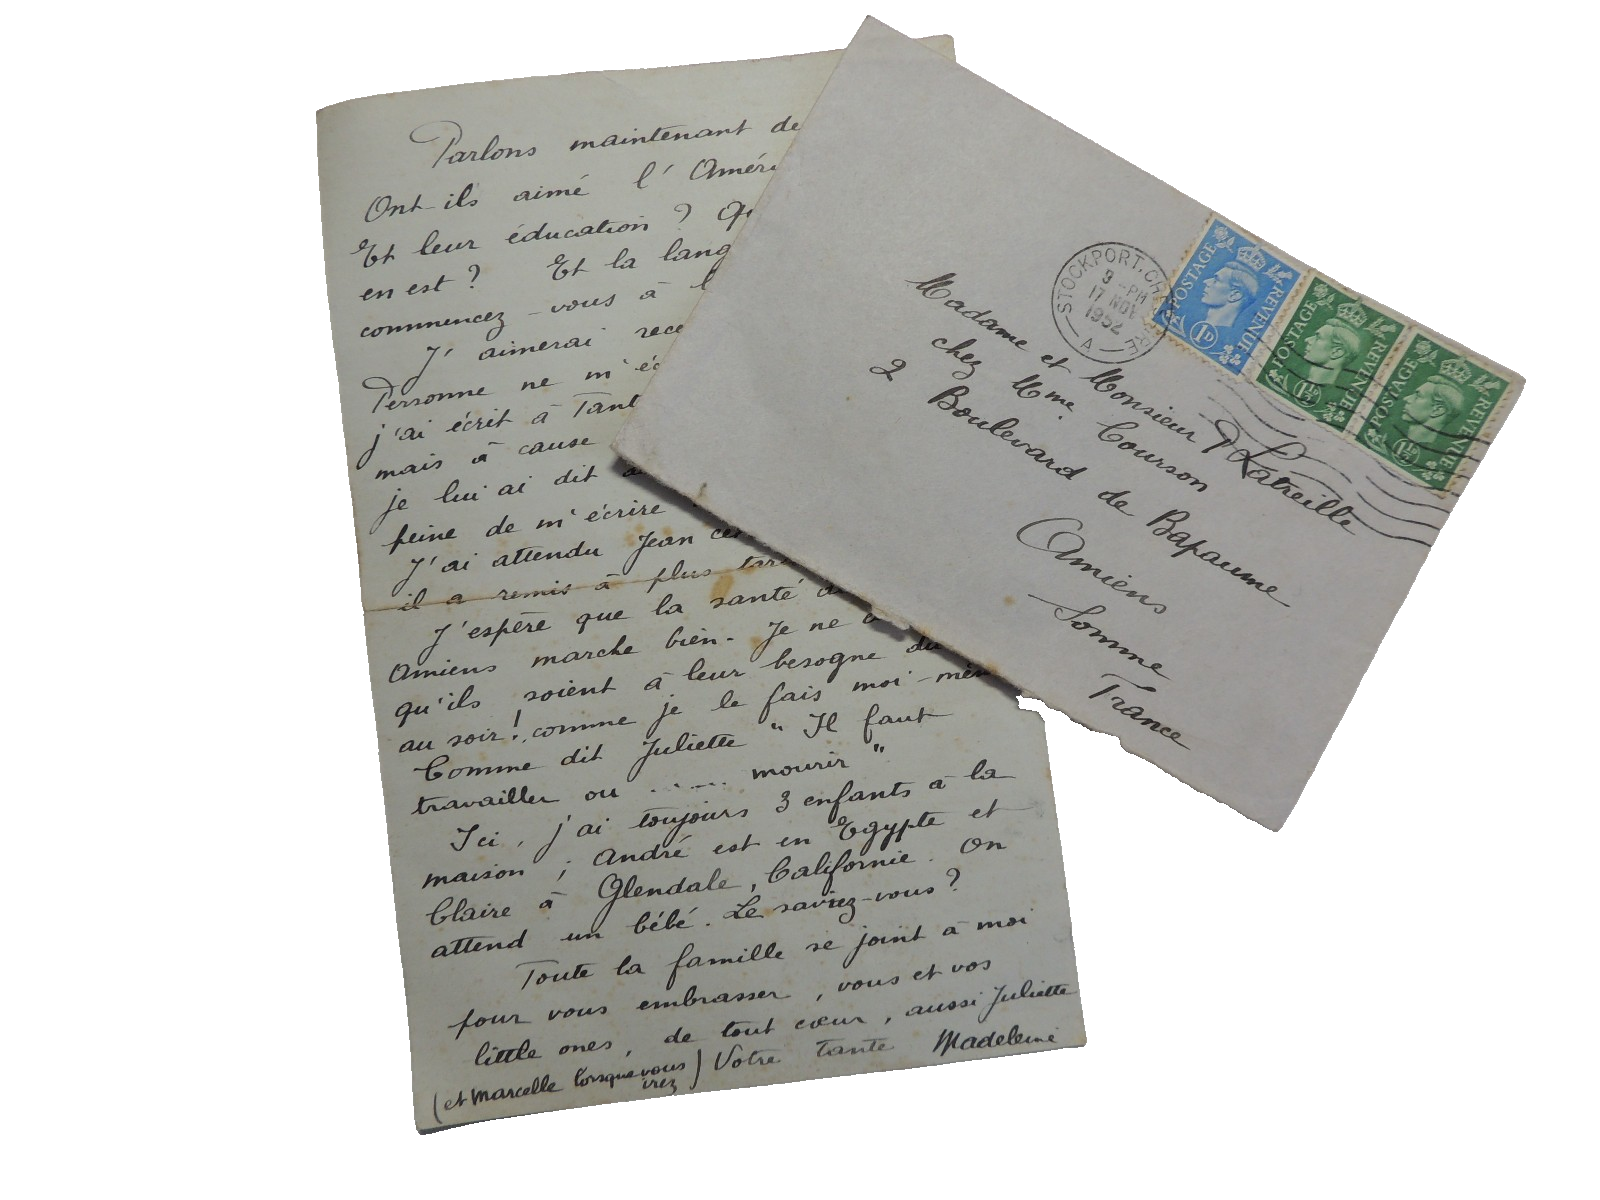 Parlons maintenant de
Ont-ils aimé l'Améri
Et leur éducation ? Qu
en est ? Et la lang
commencez-vous à l
J'aimerai rece
Personne ne m'éc
j'ai écrit à Tant
mais à cause
je lui ai dit
peine de m'écrire
J'ai attendu Jean ce
il a remis à plus tard
J'espère que la santé d
Amiens marche bien. Je ne
qu'ils soient à leur besogne du
au soir ! comme je le fais moi-mêm
Comme dit Juliette " Il faut
travailler ou ...... mourir "
Ici, j'ai toujours 3 enfants à la
maison ; André est en Egypte et
Claire à Glendale, Californie. On
attend un bébé. Le saviez-vous ?
Toute la famille se joint à moi
pour vous embrasser, vous et vos
little ones, de tout cœur, aussi Juliette
(et Marcelle lorsque vous irez) Votre tante Madeleine
STOCKPORT, CHESHIRE
PM
17 NOV
1952
A
POSTAGE REVENUE
1D
POSTAGE REVENUE
1½D
POSTAGE REVENUE
1½D
Madame et Monsieur P Latreille
chez Mme Courson
2 Boulevard de Bapaume
Amiens
Somme
France